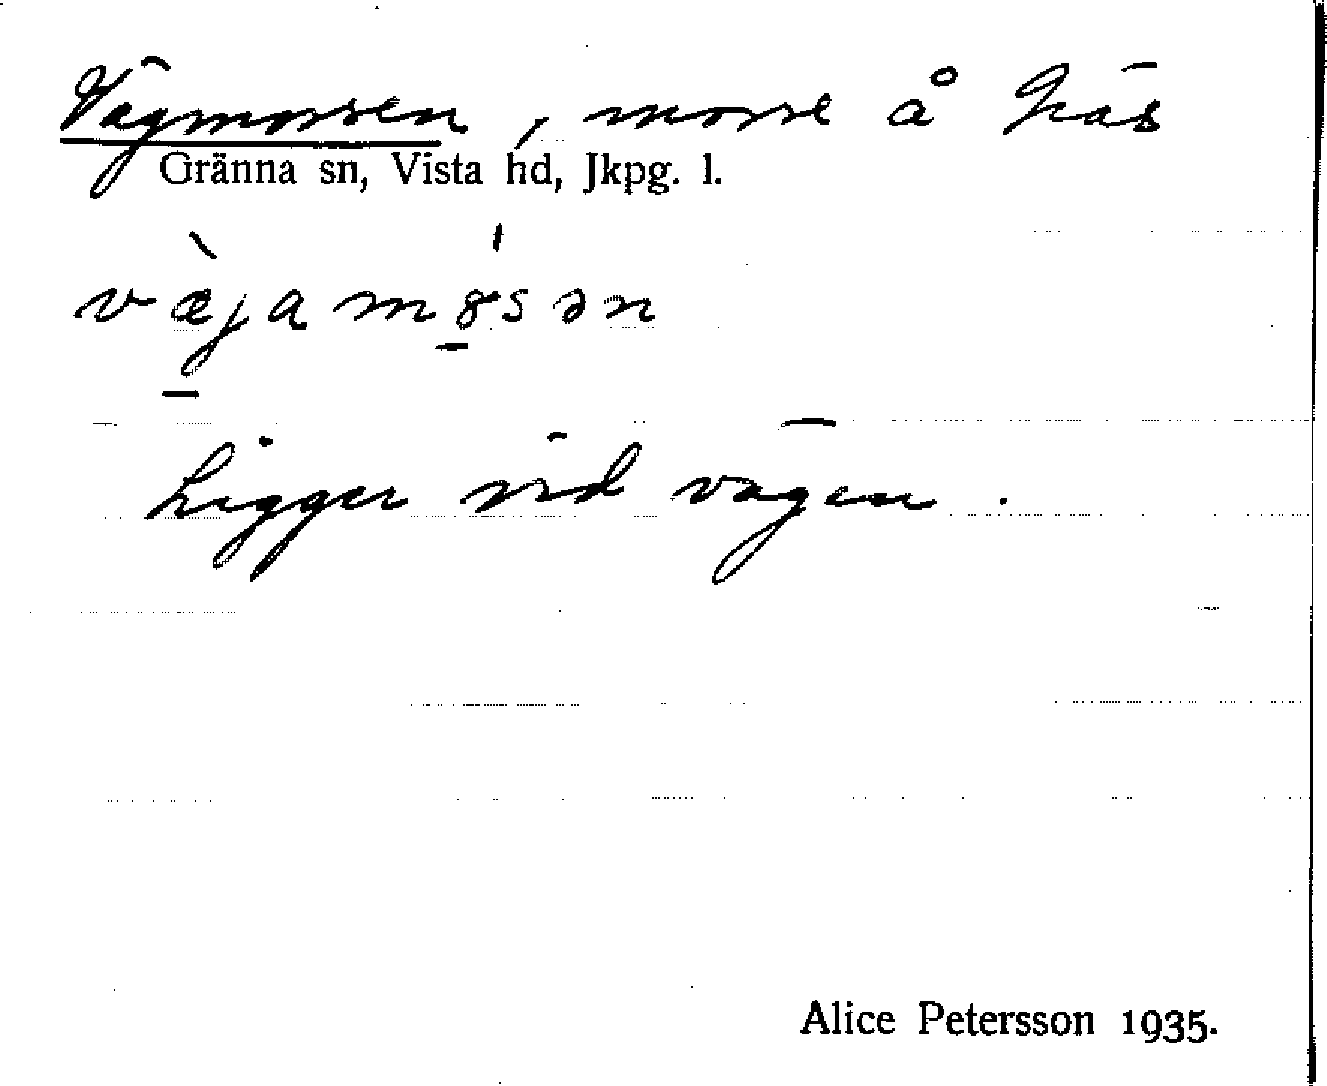 Vägmossen, mosse å Näs
Gränna sn, Vista hd, Jkpg. l.
væ̀jamósən
Ligger vid vägen.
Alice Petersson 1935.